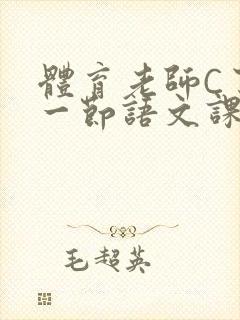 體育老師C
一節語文課
毛超英